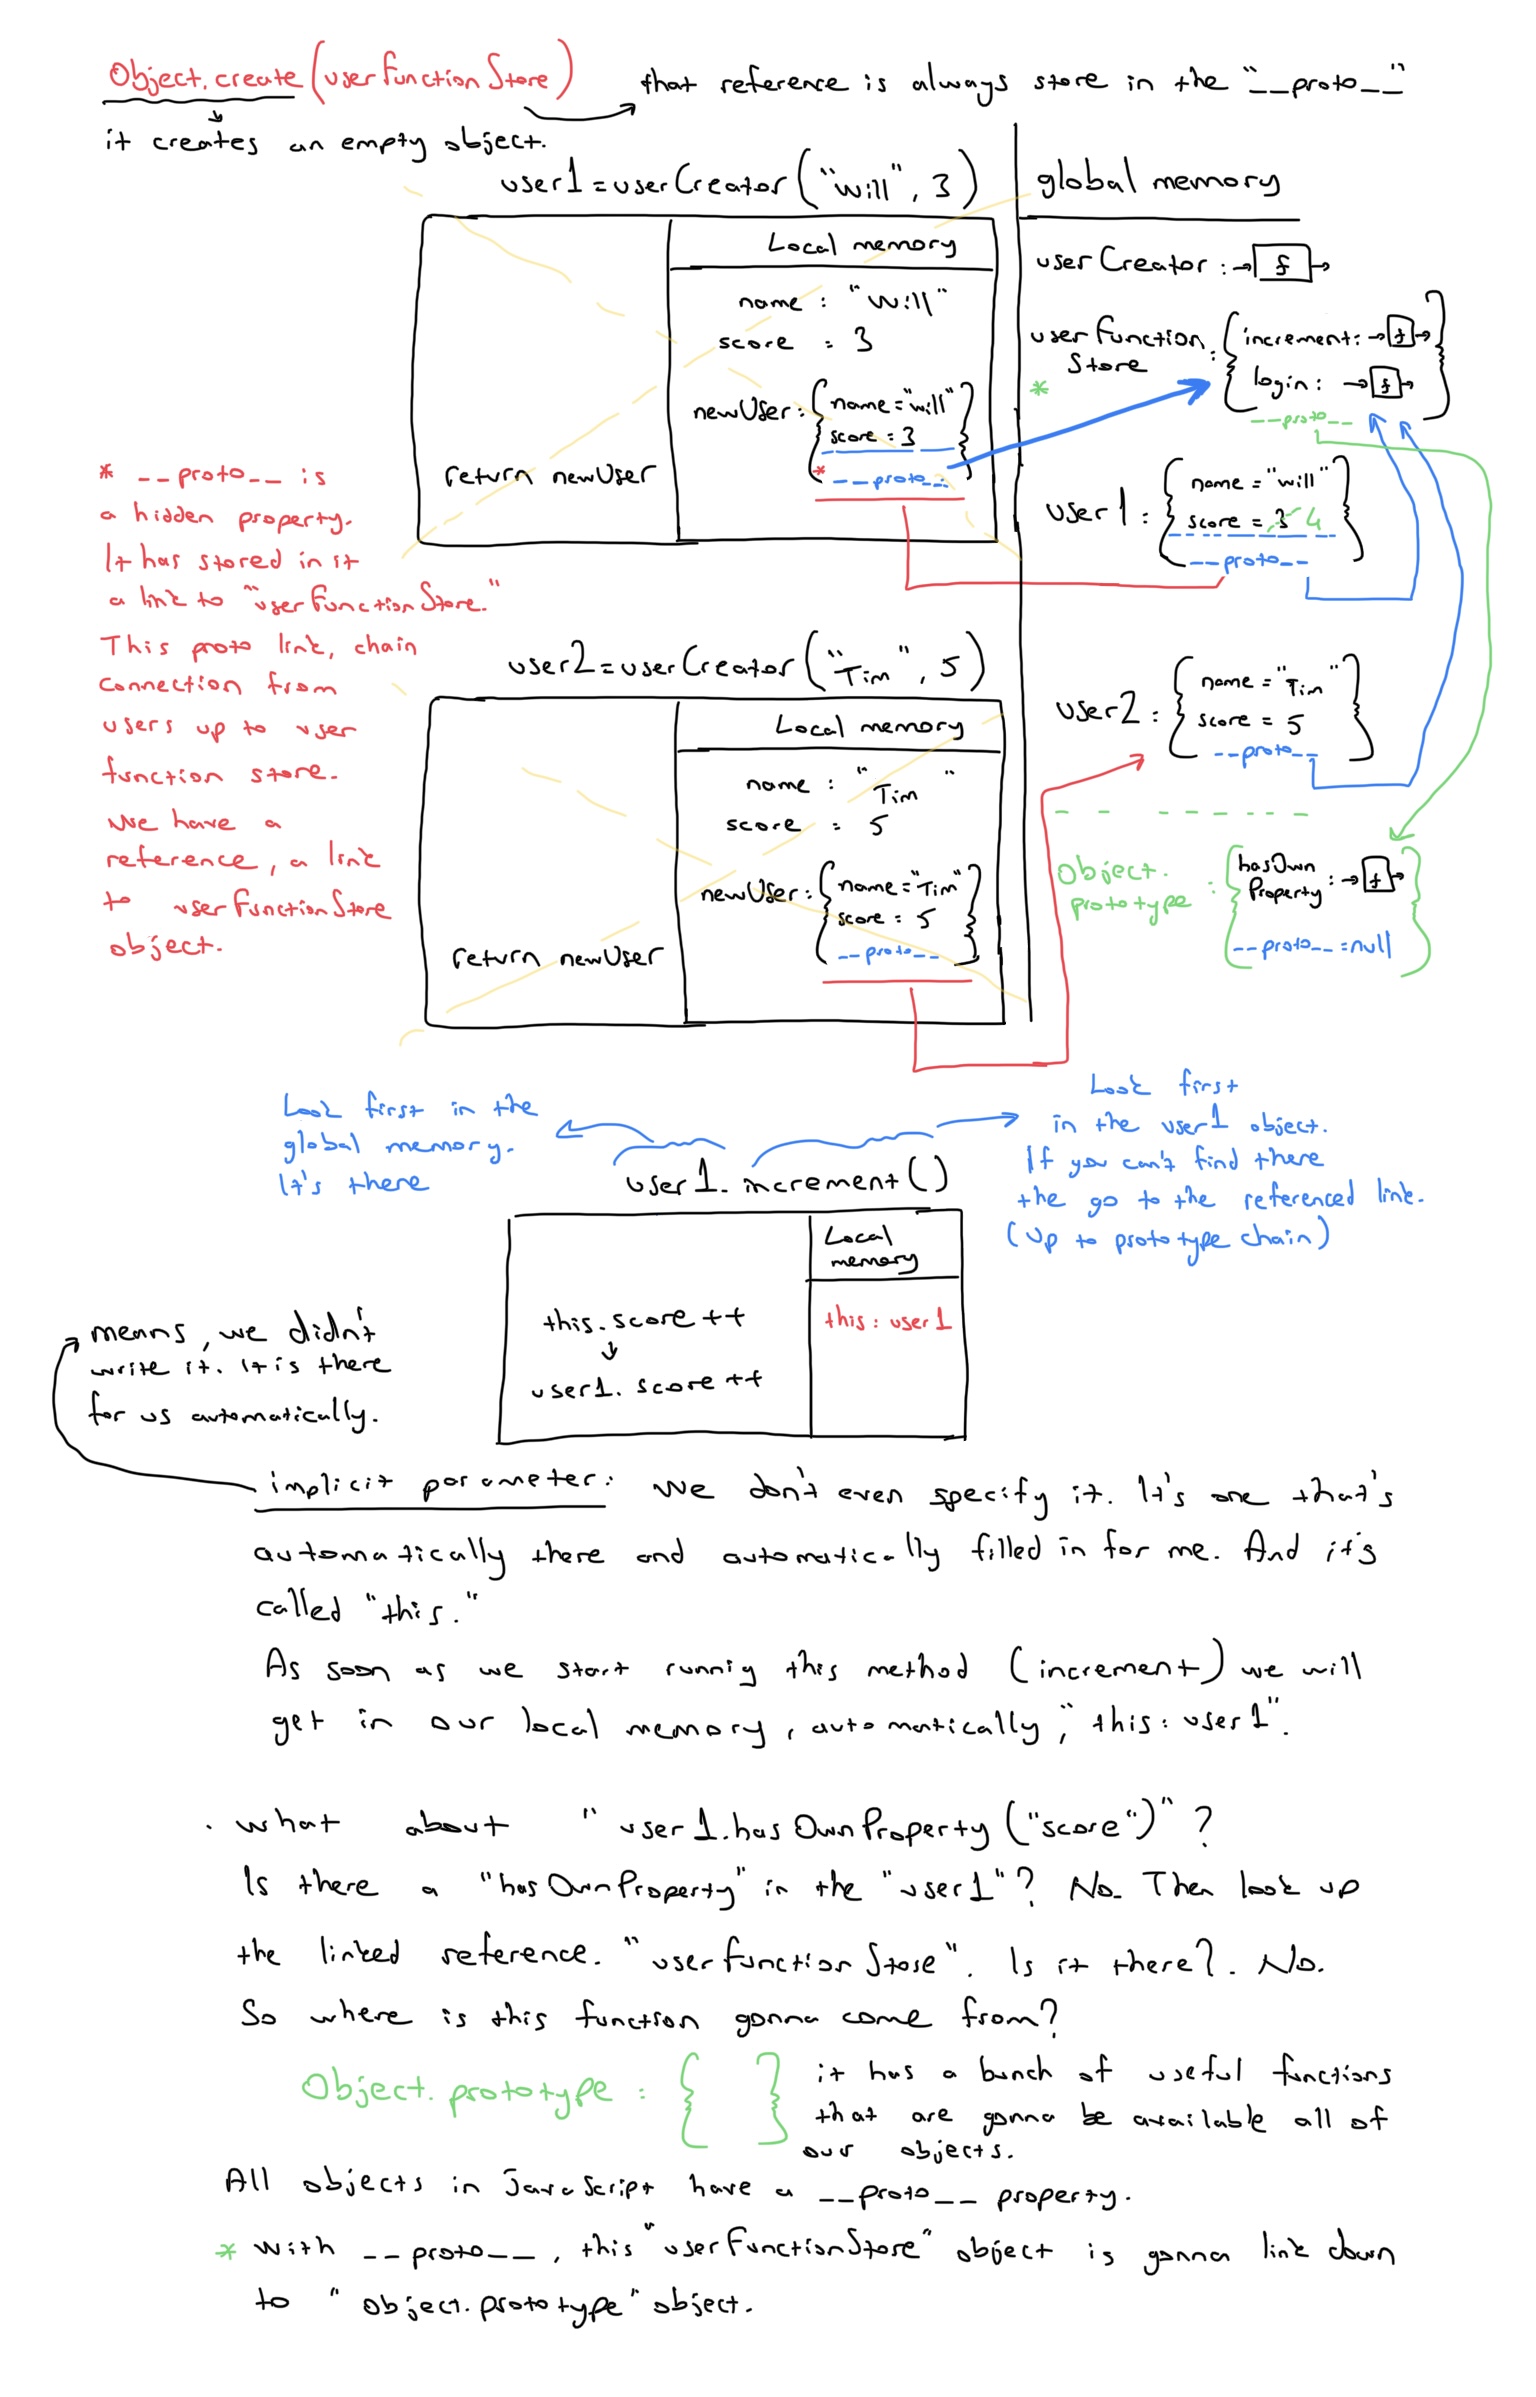 Object.create(userFunctionStore)
that reference is always store in the "__proto__"
it creates an empty object.
user1 = userCreator("Will", 3)
Local memory
name : "Will"
score : 3
newUser : { name = "will"
score : 3
* __proto__ }
return newUser
global memory
userCreator : → f →
userFunction
Store : { increment : → f →
login : → f → }
*
__proto__
user1 : { name = "will"
score = 3 4
__proto__ }
* __proto__ is
a hidden property.
It has stored in it
a link to "userFunctionStore."
This proto link, chain
connection from
users up to user
function store.
We have a
reference, a link
to userFunctionStore
object.
user2 = userCreator("Tim", 5)
Local memory
name : "Tim"
score : 5
newUser : { name = "Tim"
score = 5
__proto__ }
return newUser
user2 : { name = "Tim"
score = 5
__proto__ }
Object.
prototype : { hasOwn
Property : → f →
__proto__ = null }
Look first in the
global memory.
It's there
user1.increment()
Look first
in the user1 object.
If you can't find there
the go to the referenced link.
(Up to prototype chain)
Local
memory
this.score ++
↓
user1.score ++
this : user1
means, we didn't
write it. It is there
for us automatically.
implicit parameter: We don't even specify it. It's one that's
automatically there and automatically filled in for me. And it's
called "this."
As soon as we start runnig this method (increment) we will
get in our local memory, automatically, "this: user1".
. what about "user1.hasOwnProperty("score")" ?
Is there a "hasOwnProperty" in the "user1"? No. Then look up
the linked reference. "userFunctionStore". Is it there?. No.
So where is this function gonna come from?
Object.prototype : { } it has a bunch of useful functions
that are gonna be available all of
our objects.
All objects in JavaScript have a __proto__ property.
* With __proto__, this "userFunctionStore" object is gonna link down
to "object.prototype" object.